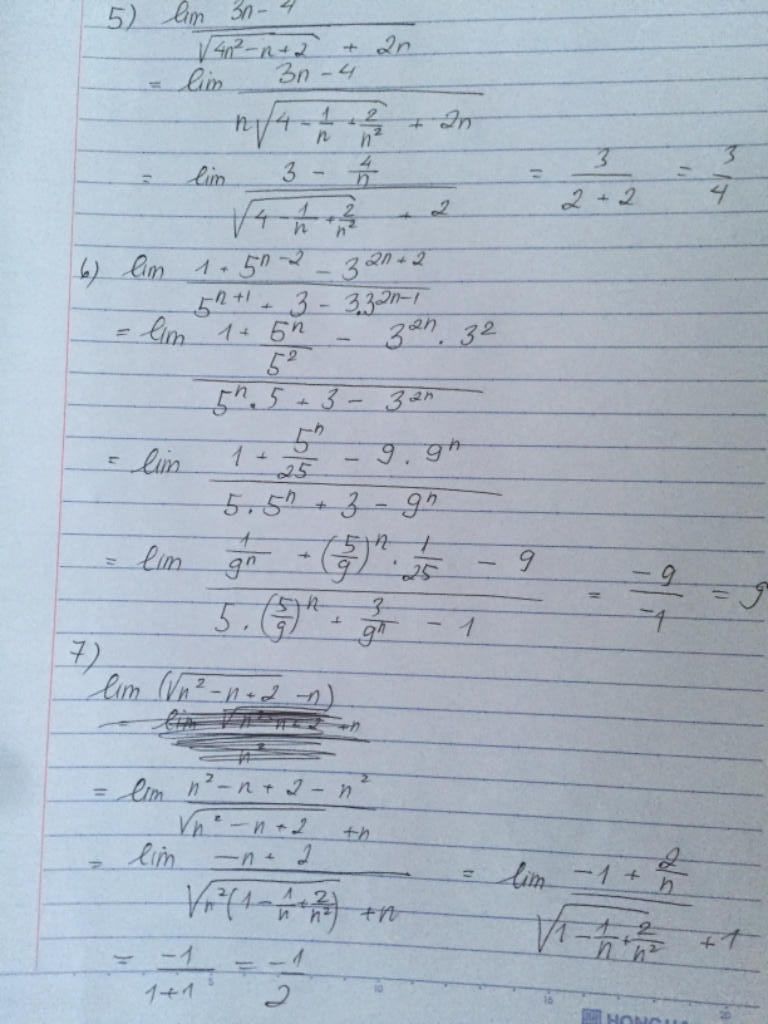 5) lim (3n - 4)/(√(4n² - n + 2) + 2n)
= lim (3n - 4)/(n√(4 - 1/n + 2/n²) + 2n)
= lim (3 - 4/n)/(√(4 - 1/n + 2/n²) + 2) = 3/(2 + 2) = 3/4
6) lim (1 + 5ⁿ⁻² - 3²ⁿ⁺²)/(5ⁿ⁺¹ + 3 - 3.3²ⁿ⁻¹)
= lim (1 + 5ⁿ/5² - 3²ⁿ . 3²)/(5ⁿ . 5 + 3 - 3²ⁿ)
= lim (1 + 5ⁿ/25 - 9 . 9ⁿ)/(5 . 5ⁿ + 3 - 9ⁿ)
= lim (1/9ⁿ + (5/9)ⁿ . 1/25 - 9)/(5 . (5/9)ⁿ + 3/9ⁿ - 1) = -9/-1 = 9
7)
lim (√(n² - n + 2) - n)
= lim (n² - n + 2 - n²)/(√(n² - n + 2) + n)
= lim (-n + 2)/(√(n²(1 - 1/n + 2/n²)) + n) = lim (-1 + 2/n)/(√(1 - 1/n + 2/n²) + 1)
= -1/(1+1) = -1/2
5 10 15 20